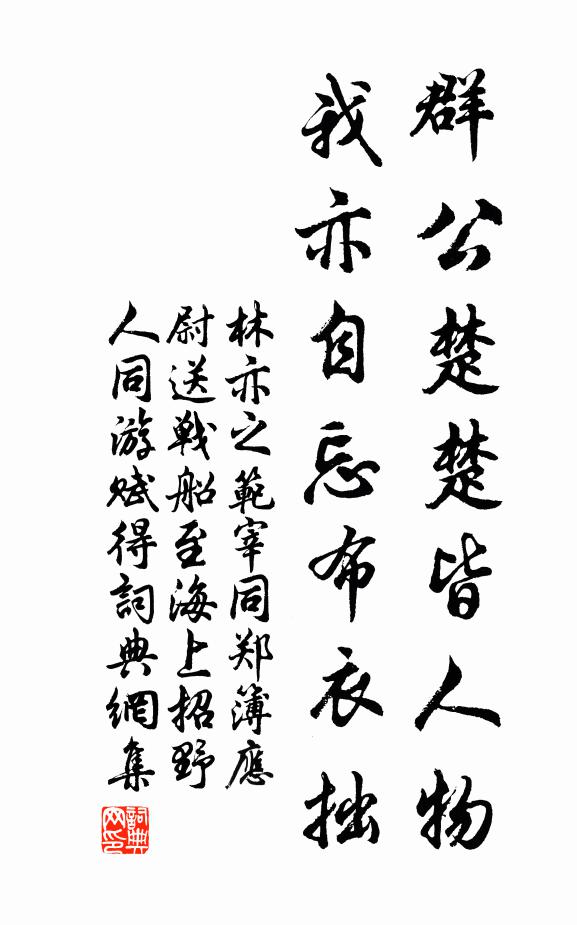 群公楚楚皆人物
我亦自忘布衣拙
林亦之範宰同郑簿應
尉送戦船至海上招野
人同游赋得詞典網集
詞典
网印